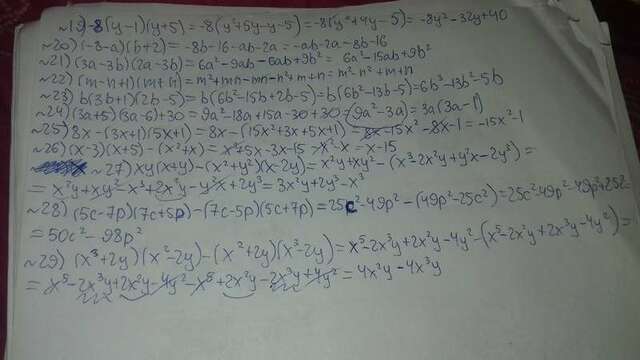 ~19) -8(y-1)(y+5) = -8(y²+5y-y-5) = -8(y²+4y-5) = -8y²-32y+40
~20) (-8-a)(b+2) = -8b-16-ab-2a = -ab-2a-8b-16
~21) (3a-3b)(2a-3b) = 6a²-9ab-6ab+9b² = 6a²-15ab+9b²
~22) (m-n+1)(m+n) = m²+mn-mn-n²+m+n = m²-n²+m+n
~23) b(3b+1)(2b-5) = b(6b²-15b+2b-5) = b(6b²-13b-5) = 6b³-13b²-5b
~24) (3a+5)(3a-6)+30 = 9a²-18a+15a-30+30 = 9a²-3a = 3a(3a-1)
~25) 8x-(3x+1)(5x+1) = 8x-(15x²+3x+5x+1) = 8x-15x²-8x-1 = -15x²-1
~26) (x-3)(x+5)-(x²+x) = x²+5x-3x-15-x²-x = x-15
~27) xy(x+y)-(x²+y²)(x-2y) = x²y+xy²-(x³-2x²y+y²x-2y³) =
= x²y+xy²-x³+2x²y-y²x+2y³ = 3x²y+2y³-x³
~28) (5c-7p)(7c+5p)-(7c-5p)(5c+7p) = 25c²-49p²-(49p²-25c²) = 25c²-49p²-49p²+25c²
= 50c²-98p²
~29) (x³+2y)(x²-2y)-(x²+2y)(x³-2y) = x⁵-2x³y+2x²y-4y²-(x⁵-2x²y+2x³y-4y²) =
= x⁵-2x³y+2x²y-4y²-x⁵+2x²y-2x³y+4y² = 4x²y-4x³y